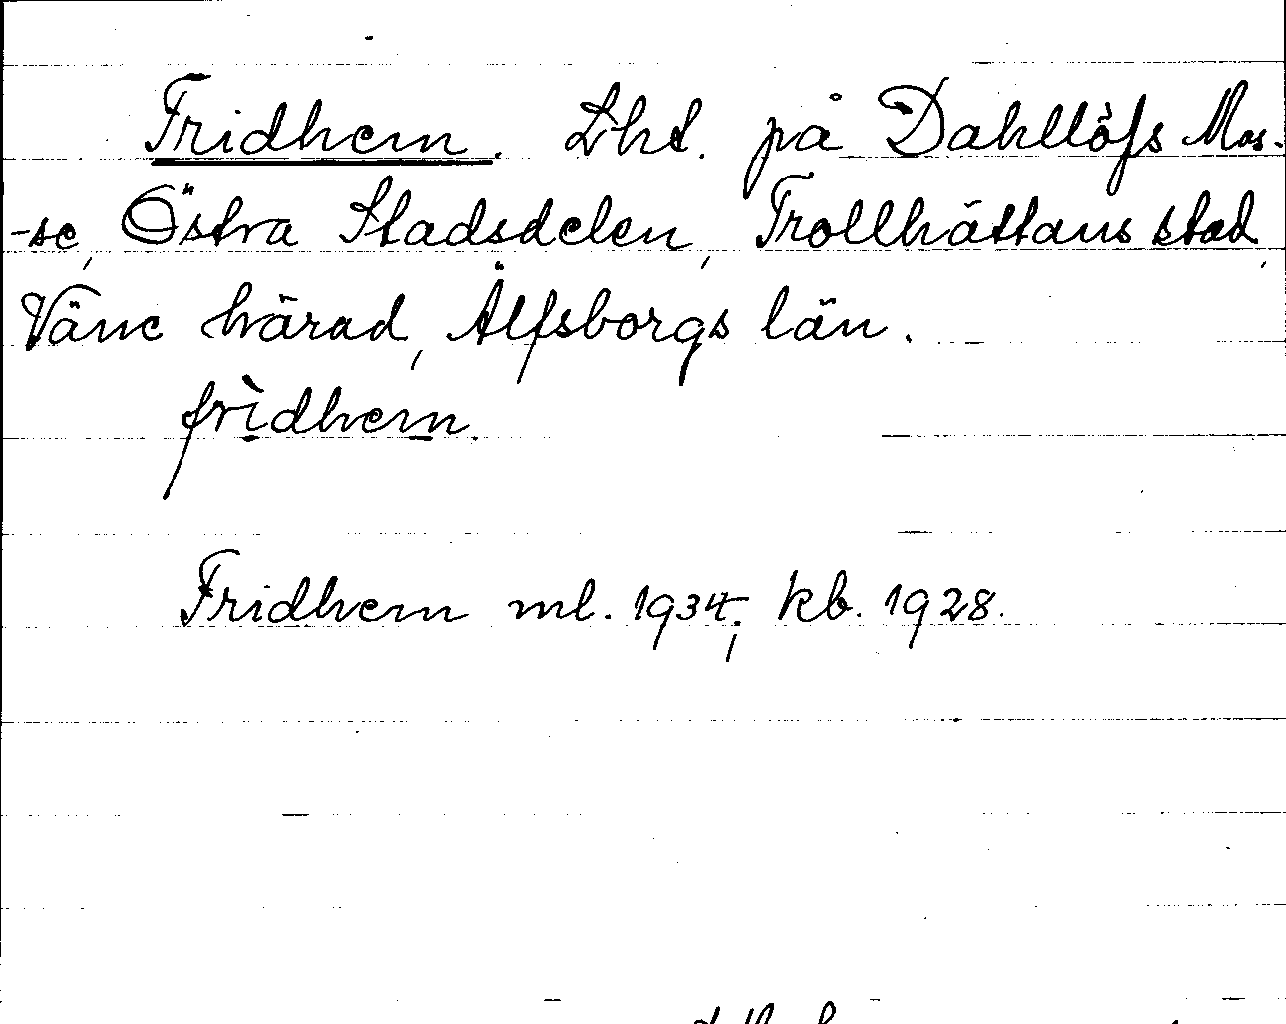 Fridhem. Lht. på Dahllöfs Mos-
-se, Östra Stadsdelen, Trollhättans stad,
Väne härad, Älfsborgs län.
frìdhem.
Fridhem ml. 1934; kb. 1928.